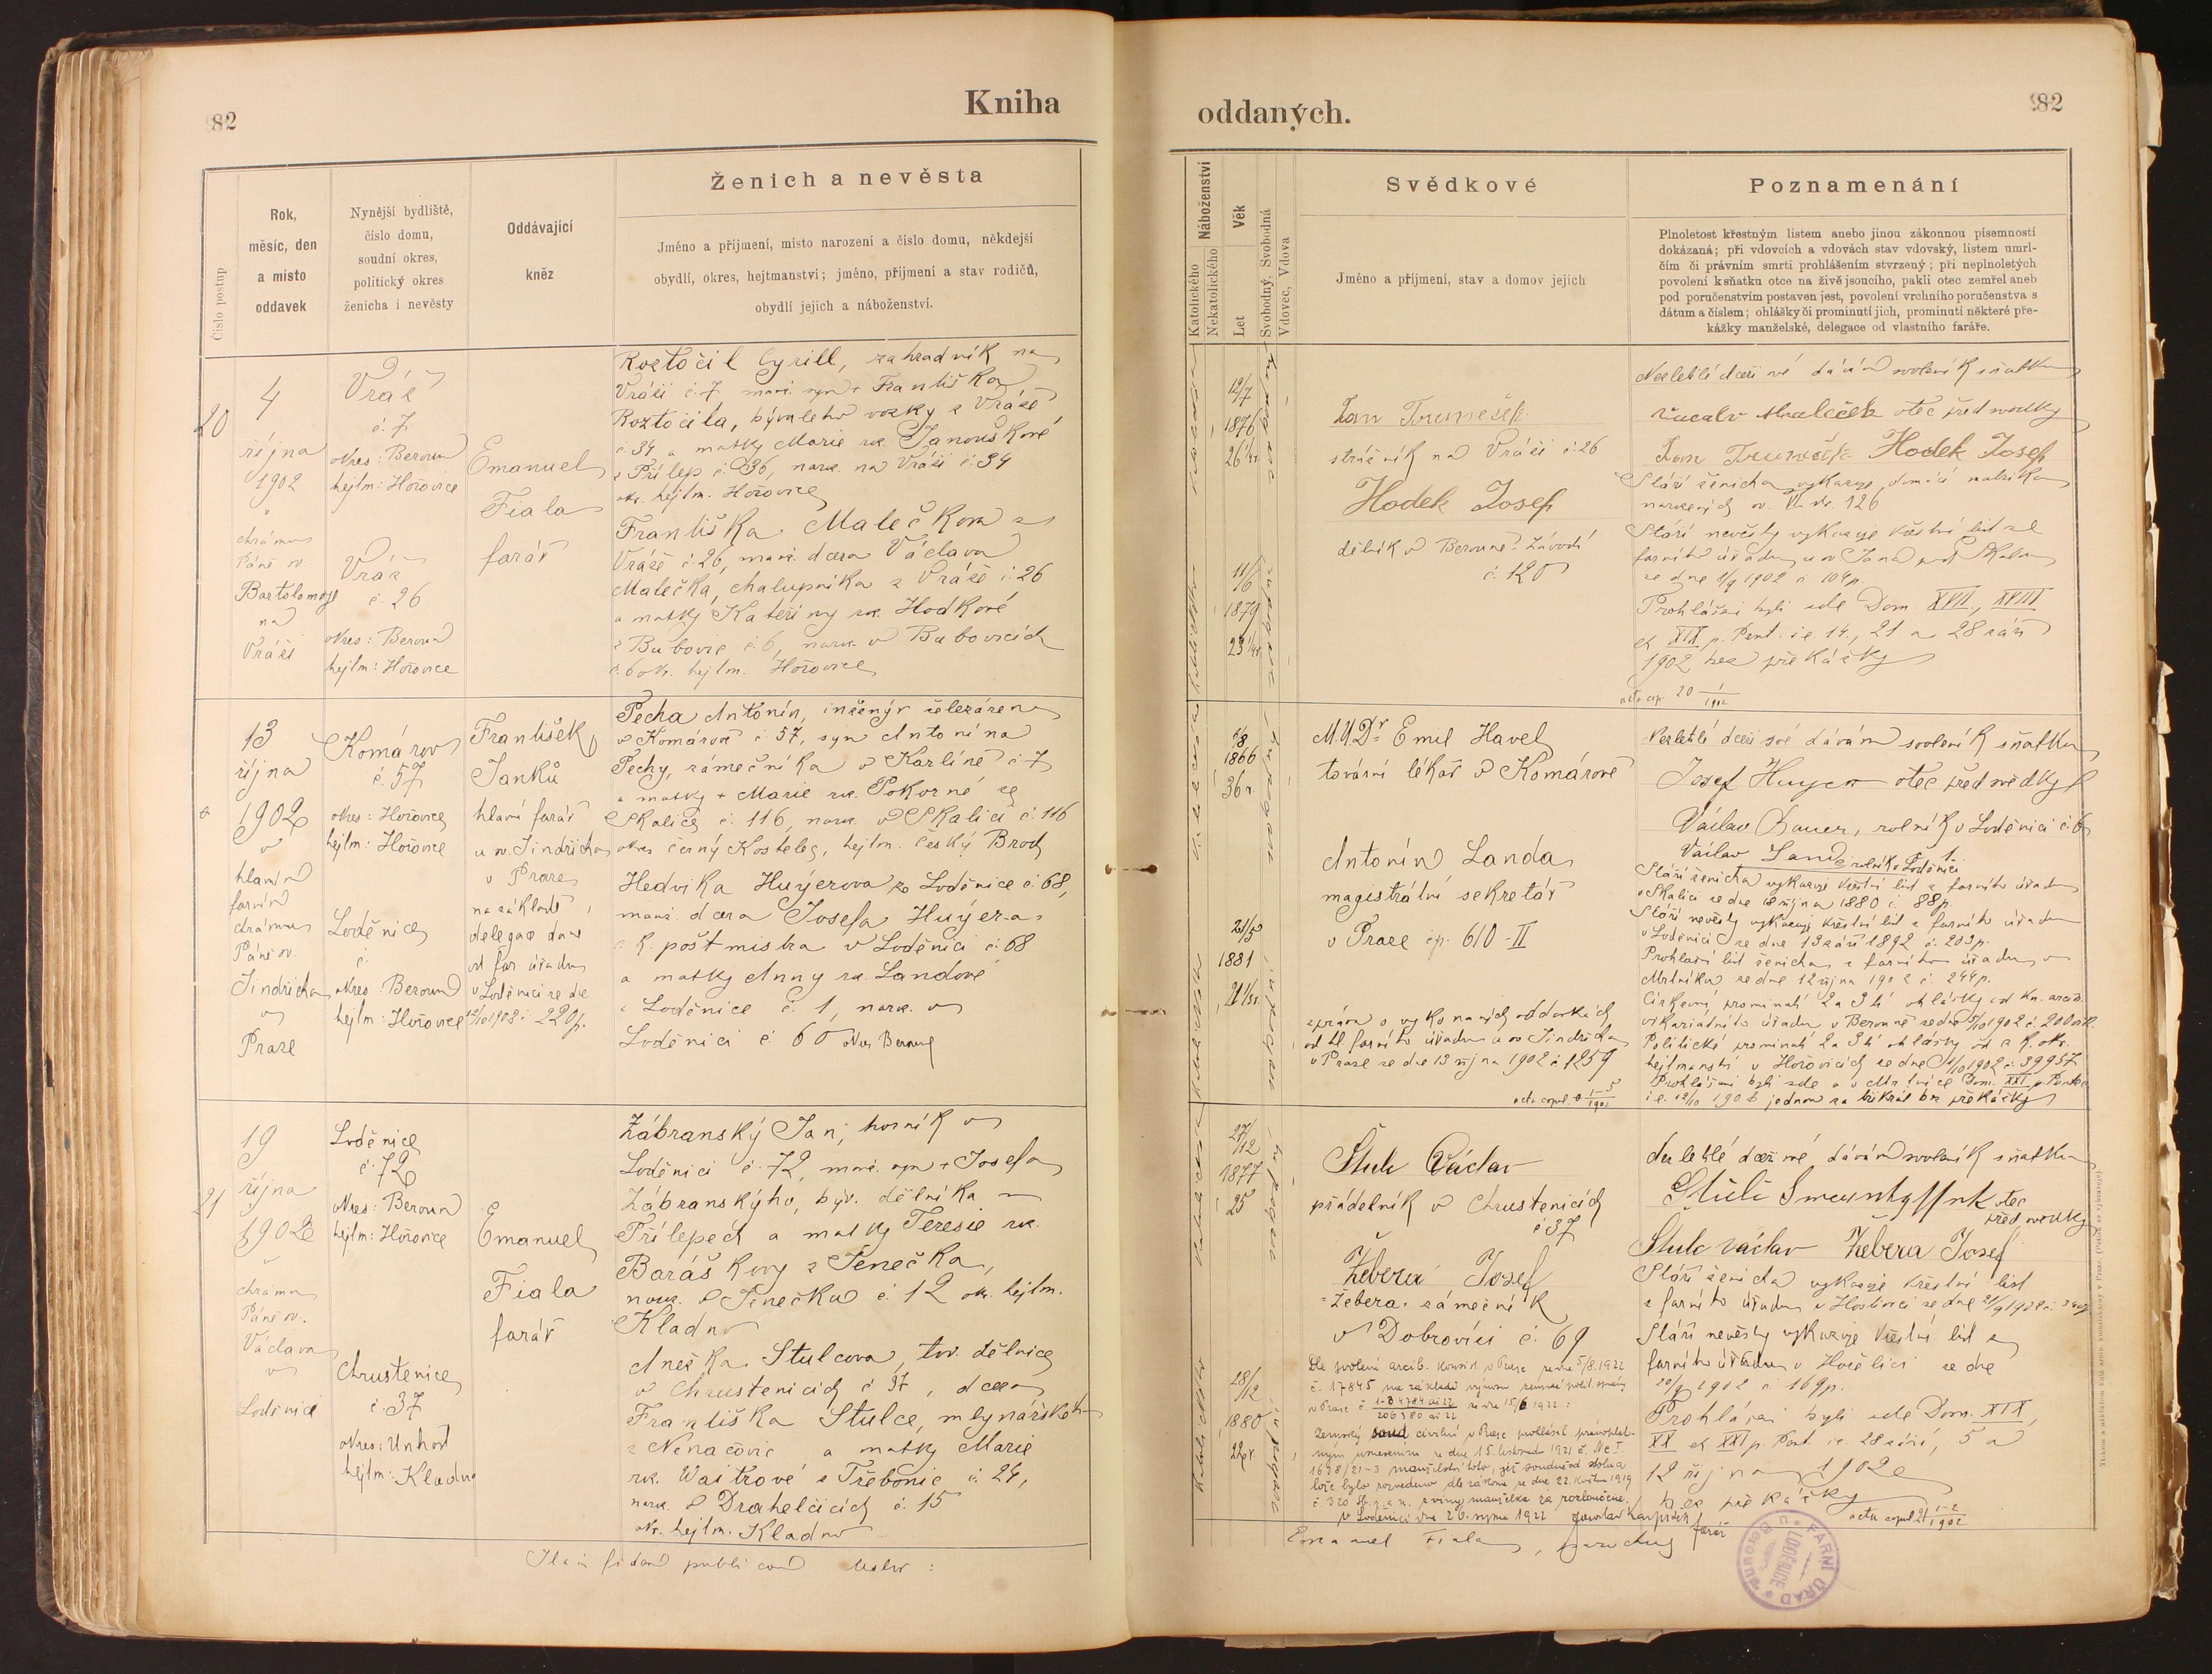 82
Kniha
Číslo postup
Rok,
měsíc, den
a místo
oddavek
Nynější bydliště,
číslo domu,
soudní okres,
politický okres
ženicha i nevěsty
Oddávající
kněz
Ženich a nevěsta
Jméno a příjmení, místo narození a číslo domu, někdejší
obydlí, okres, hejtmanství; jméno, příjmení a stav rodičů,
obydlí jejich a náboženství.
20
4
října
1902
chrámu
Páně sv.
Bartoloměje
na
Vráži
Vráž
č. 7
okres: Beroun
hejtm: Hořovice
Vráž
č. 26
okres: Beroun
hejtm: Hořovice
Emanuel
Fiala
farář
Roztočil Cyrill, zahradník na
Vráži č. 7, manž. syn + Františka
Roztočila, bývalého vozky z Vráže
č. 34 a matky Marie roz. Janouškové
z Přílep č. 36, naroz. na Vráži č. 34
okr. hejtm. Hořovice
Františka Malečkova z
Vráže č. 26, manž. dcera Václava
Malečka, chalupníka z Vráže č. 26
a matky Kateřiny roz. Hodkové
z Bubovic č. 6, naroz. v Bubovicích
č. 6 okr. hejtm. Hořovice
13
října
1902
v
hlavním
farním
chrámu
Páně sv.
Jindřicha
v
Praze
Komárov
č. 57
okres: Hořovice
hejtm: Hořovice
Loděnice
č.
okres: Beroun
hejtm: Hořovice
František
Janků
hlavní farář
u sv. Jindřicha
v Praze
na základě
delegace dané
od far. úřadu
v Loděnici ze dne
12/10 1902 č. 220 p.
Pecha Antonín, inženýr železáren
v Komárově č. 57, syn Antonína
Pechy, zámečníka v Karlíně č. 7
a matky + Marie roz. Pokorné ze
Skalice č. 116, naroz. v Skalici č. 116
okres černý Kostelec, hejtm. český Brod
Hedvika Huyerova ze Loděnice č. 68,
manž. dcera Josefa Huyera
c. k. poštmistra v Loděnici č. 68
a matky Anny roz. Landové
z Loděnice č. 1, naroz. v
Loděnici č. 60 okres Beroun
21
19
října
1902
v
chrámu
Páně sv.
Václava
v
Loděnici
Loděnice
č. 72
okres: Beroun
hejtm: Hořovice
Chrustenice
č. 37
okres: Unhošť
hejtm: Kladno
Emanuel
Fiala
farář
Zábranský Jan, horník v
Loděnici č. 72, manž. syn + Josefa
Zábranskýho, býv. dělníka v
Přílepech a matky Terezie roz.
Barášková z Jenečka,
naroz. v Jenečku č. 12 okr. hejtm.
Kladno
Anežka Stulcova, tov. dělnice
v Chrustenicích č. 37, dcera
Františka Štulce, mlynářského
z Nenačovic a matky Marie
roz. Waitrové z Třebonic č. 24,
naroz. v Drahelčicích č. 15
okr. hejtm. Kladno
oddaných.
82
Náboženství
Katolického
Nekatolického
Věk
Let
Svobodný, Svobodná
Vdovec, Vdova
Svědkové
Jméno a příjmení, stav a domov jejich
Poznamenání
Plnoletost křestným listem anebo jinou zákonnou písemností
dokázaná; při vdovcích a vdovách stav vdovský, listem umrl-
čím či právním smrti prohlášením stvrzený; při neplnoletých
povolení k sňatku otce na živě jsoucího, pakli otec zemřel aneb
pod poručenstvím postaven jest, povolení vrchního poručenstva s
dátum a číslem; ohlášky či prominutí jich, prominutí některé pře-
kážky manželské, delegace od vlastního faráře.
12/7
1876
26 1/4 r.
11/6
1879
23 1/4 r.
Jan Trunečék
strážník na Vráži č. 26
Hodek Josef
dělník v Berouně-Závodí
č. 120
Nezletilé dceři mé dávám svolení k sňatku
Maleček otec předm. nevěsty
Hodek Josef
Stáří ženicha vykazuje domácí matrika
narozených sv. VI. str. 126
Stáří nevěsty vykazuje křestní list z
farního úřadu u sv. Jana pod Skalou
ze dne 9/9 1902 č. 104 p.
Prohlášeni byli zde Dom. XVII., XVIII
et XIX p. Pent. i.e. 14., 21 a 28 září
1902 bez překážky
acta cop. 20 1/1902
6/8
1866
36 r.
21/5
1881
21 1/3 r.
M.U.Dr Emil Havel
tovární lékař v Komárově
Antonín Landa
magistrátní sekretář
v Praze čp. 610-II
zpráva o vykonaných oddavkách
od hl. farního úřadu u sv. Jindřicha
v Praze ze dne 13 října 1902 č. 1259
Nezletilé dceři své dávám svolení k sňatku
Josef Huyer otec předm. nevěsty
Václav Bauer, rolník v Loděnici č. 6
Václav Landa rolník v Loděnici 1.
Stáří ženicha vykazuje křestní list z farního úřadu
v Skalici ze dne 18 října 1880 č. 88 p.
Stáří nevěsty vykazuje křestní list z farního úřadu
v Loděnici ze dne 19 září 1892 č. 203 p.
Prohlašní list ženicha z farního úřadu v
Mrtníku ze dne 12 října 1902 č. 244 p.
Církevní prominutí 2 a 3 tí ohlášky od kn. arcib.
vikariátního úřadu v Berouně
Politické prominutí 2 a 3 tí ohlášky od c. k. okr.
hejtmanství v Hořovicích ze dne 11/10 1902 č. 39957
Prohlášeni byli zde a v Mrtníce Dom. XXI p. Pentec
i.e. 12/10 1902 jednou za třikrát bez překážky
27/12
1877
25
28/12
1880
22 r.
Štulc Václav
přádelník v Chrustenicích
č 37
Žebera Josef
=Žebera= zámečník
v Dobrovízi č. 69
Dle svolení arcib. konsist. v Praze ze dne 5/8.1922
č. 17845 na základě výnosu zemské polit. správy
v Praze č. ze dne 15/6 1922:
Zemský soud civilní v Praze prohlásil pravoplat-
ným usnesením ze dne 15. listopadu 1921 č. Nc I.
1638/21-3 manželství toto, jež soudně od stolu a
lože bylo rozvedeno dle zákona ze dne 22. května 1919
č. 320 Sb. z. a n. z viny manželka za rozloučené.
V Loděnici dne 26. srpna 1922 Jaroslav
farář
Nezletilé dceři mé dávám svolení k sňatku
otec
před. nevěsty
Štulc Václav Žebera Josef
Stáří ženicha vykazuje křestní list
z farního úřadu v Hostivici ze dne 21/9 1902
Stáří nevěsty vykazuje křestní list z
farního úřadu v Hořelici ze dne
20/9 1902 č. 169 p.
Prohlášeni byli zde Dom. XIX,
XX et XXI p. Pent. i.e. 28 září, 5 a
12 října 1902
bez překážky
acta copul 21 1-2/1902
Emanuel Fiala, parochus
FARNÍ ÚŘAD LODĚNICE U Berouna